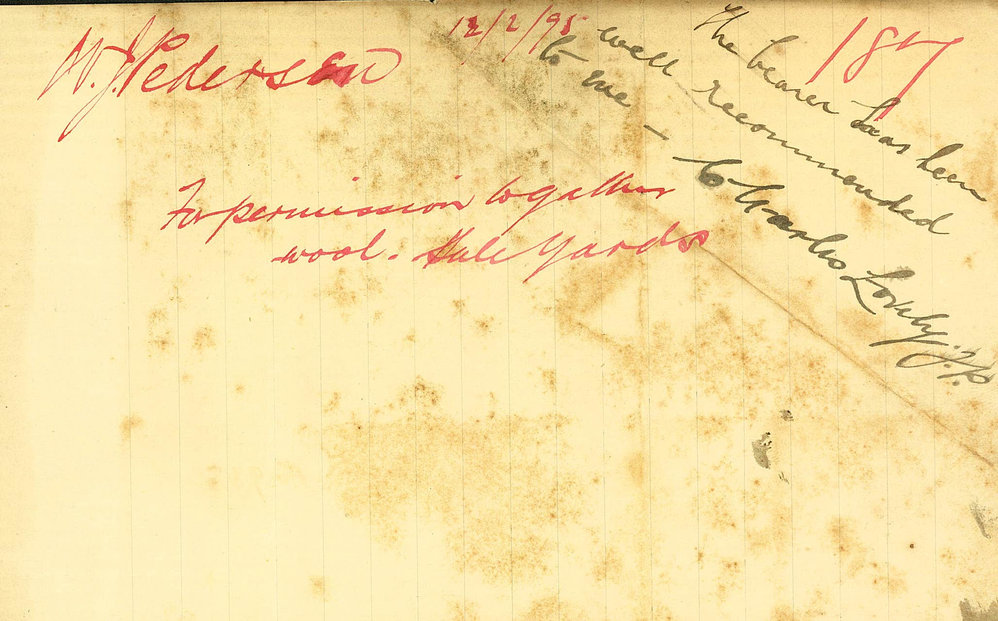 W. J. Pedersen
12/2/95
187
For permission to gather
wool. Sale Yards
The bearer has been
well recommended
to me –
Charles Lonly. J.P.